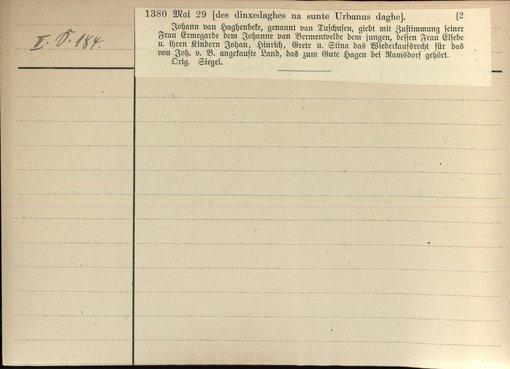 1380 Mai 29 [des dinxedaghes na sunte Urbanus daghe]. [2
Johann van Haghenbeke, genannt van Tuschusen, giebt mit Zustimmung seiner
Frau Ermegarde dem Johanne van Bermentvelde dem jungen, dessen Frau Elsebe
u. ihren Kindern Johan, Hinrich, Grete u. Stina das Wiederkaufsrecht für das
von Joh. v. B. angekaufte Land, das zum Gute Hagen bei Ramsdorf gehört.
Orig. Siegel.
II. 184.